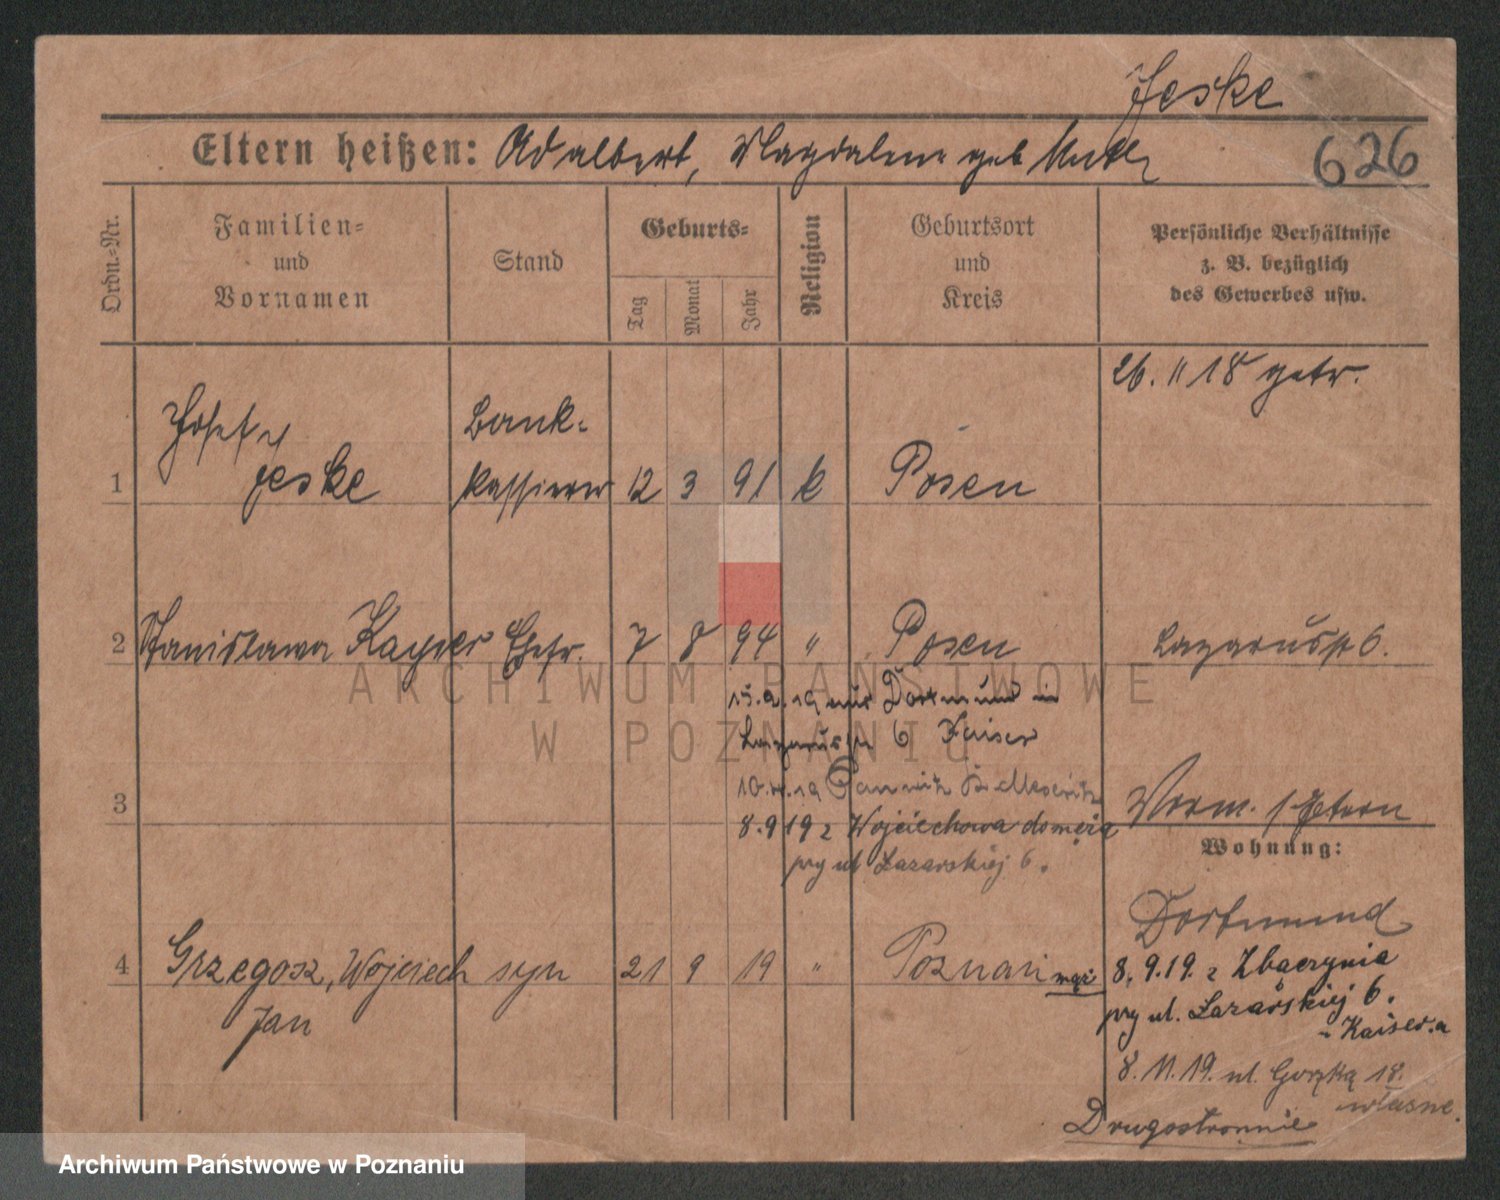 Jeske
Eltern heißen: Adalbert, Magdalena geb
626
Ordn.-Nr.
Familien-
und
Vornamen
Stand
Geburts-
Tag
Monat
Jahr
Religion
Geburtsort
und
Kreis
Persönliche Verhältnisse
z. B. bezüglich
des Gewerbes usw.
26. 11 18 getr.
Josef
Bank-
1 Jeske kassierer 12 3 91 k Posen
2 Stanislawa Kayser Ehefr. 7 8 94 " Posen Lazarusstr 6.
15.9.19 aus Dortmund in
Lazarusstr 6 Kaiser
3
8.9 19 z Wojciechowa do męża
przy ul Łazarskiej 6.
Wohnung:
Dortmund
8.9.19. z Zbączynia
przy ul. Łazarskiej 6.
- Kaiser.a
4 Grzegorz, Wojciech syn 21 9 19 " Poznań mąż
Jan
8.11.19. ul. Gorzką 18.
własne.
Drugostronnie
ARCHIWUM PAŃSTWOWE
W POZNANIU
Archiwum Państwowe w Poznaniu